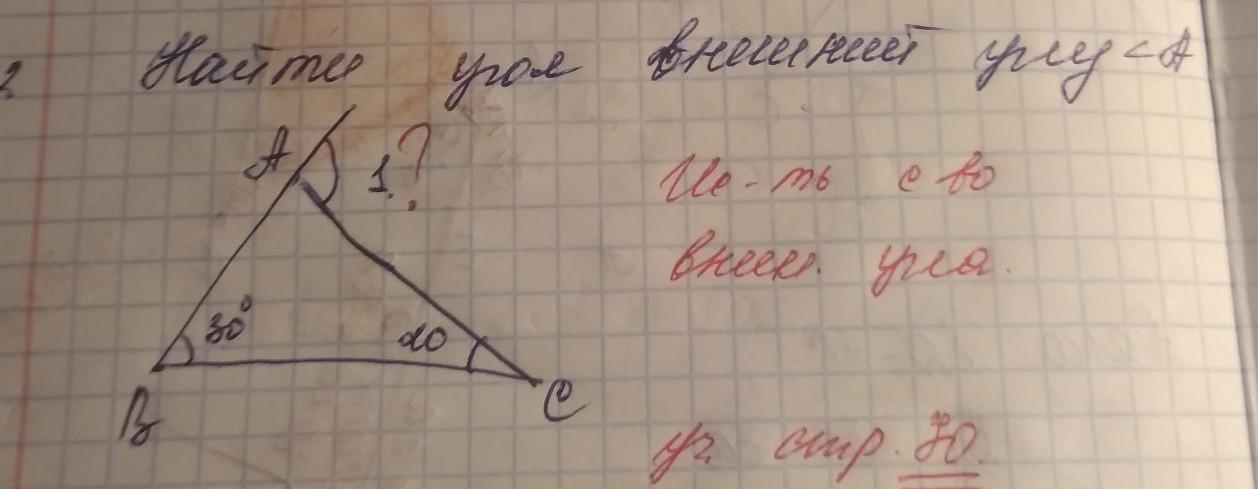 2.
Найти угол внешний углу <A
A
1.
?
Ис-ть св-во
внеш. угла.
30°
20
B
C
уч. стр. 70.